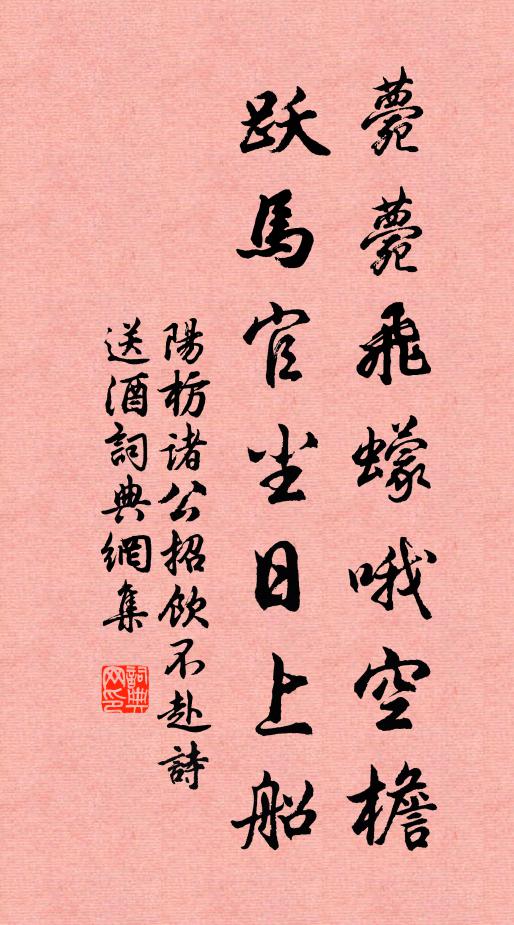 薨薨飛蠓哦空檐
跃馬官尘日上船
陽枋诸公招飲不赴詩
送酒詞典網集
詞典网印